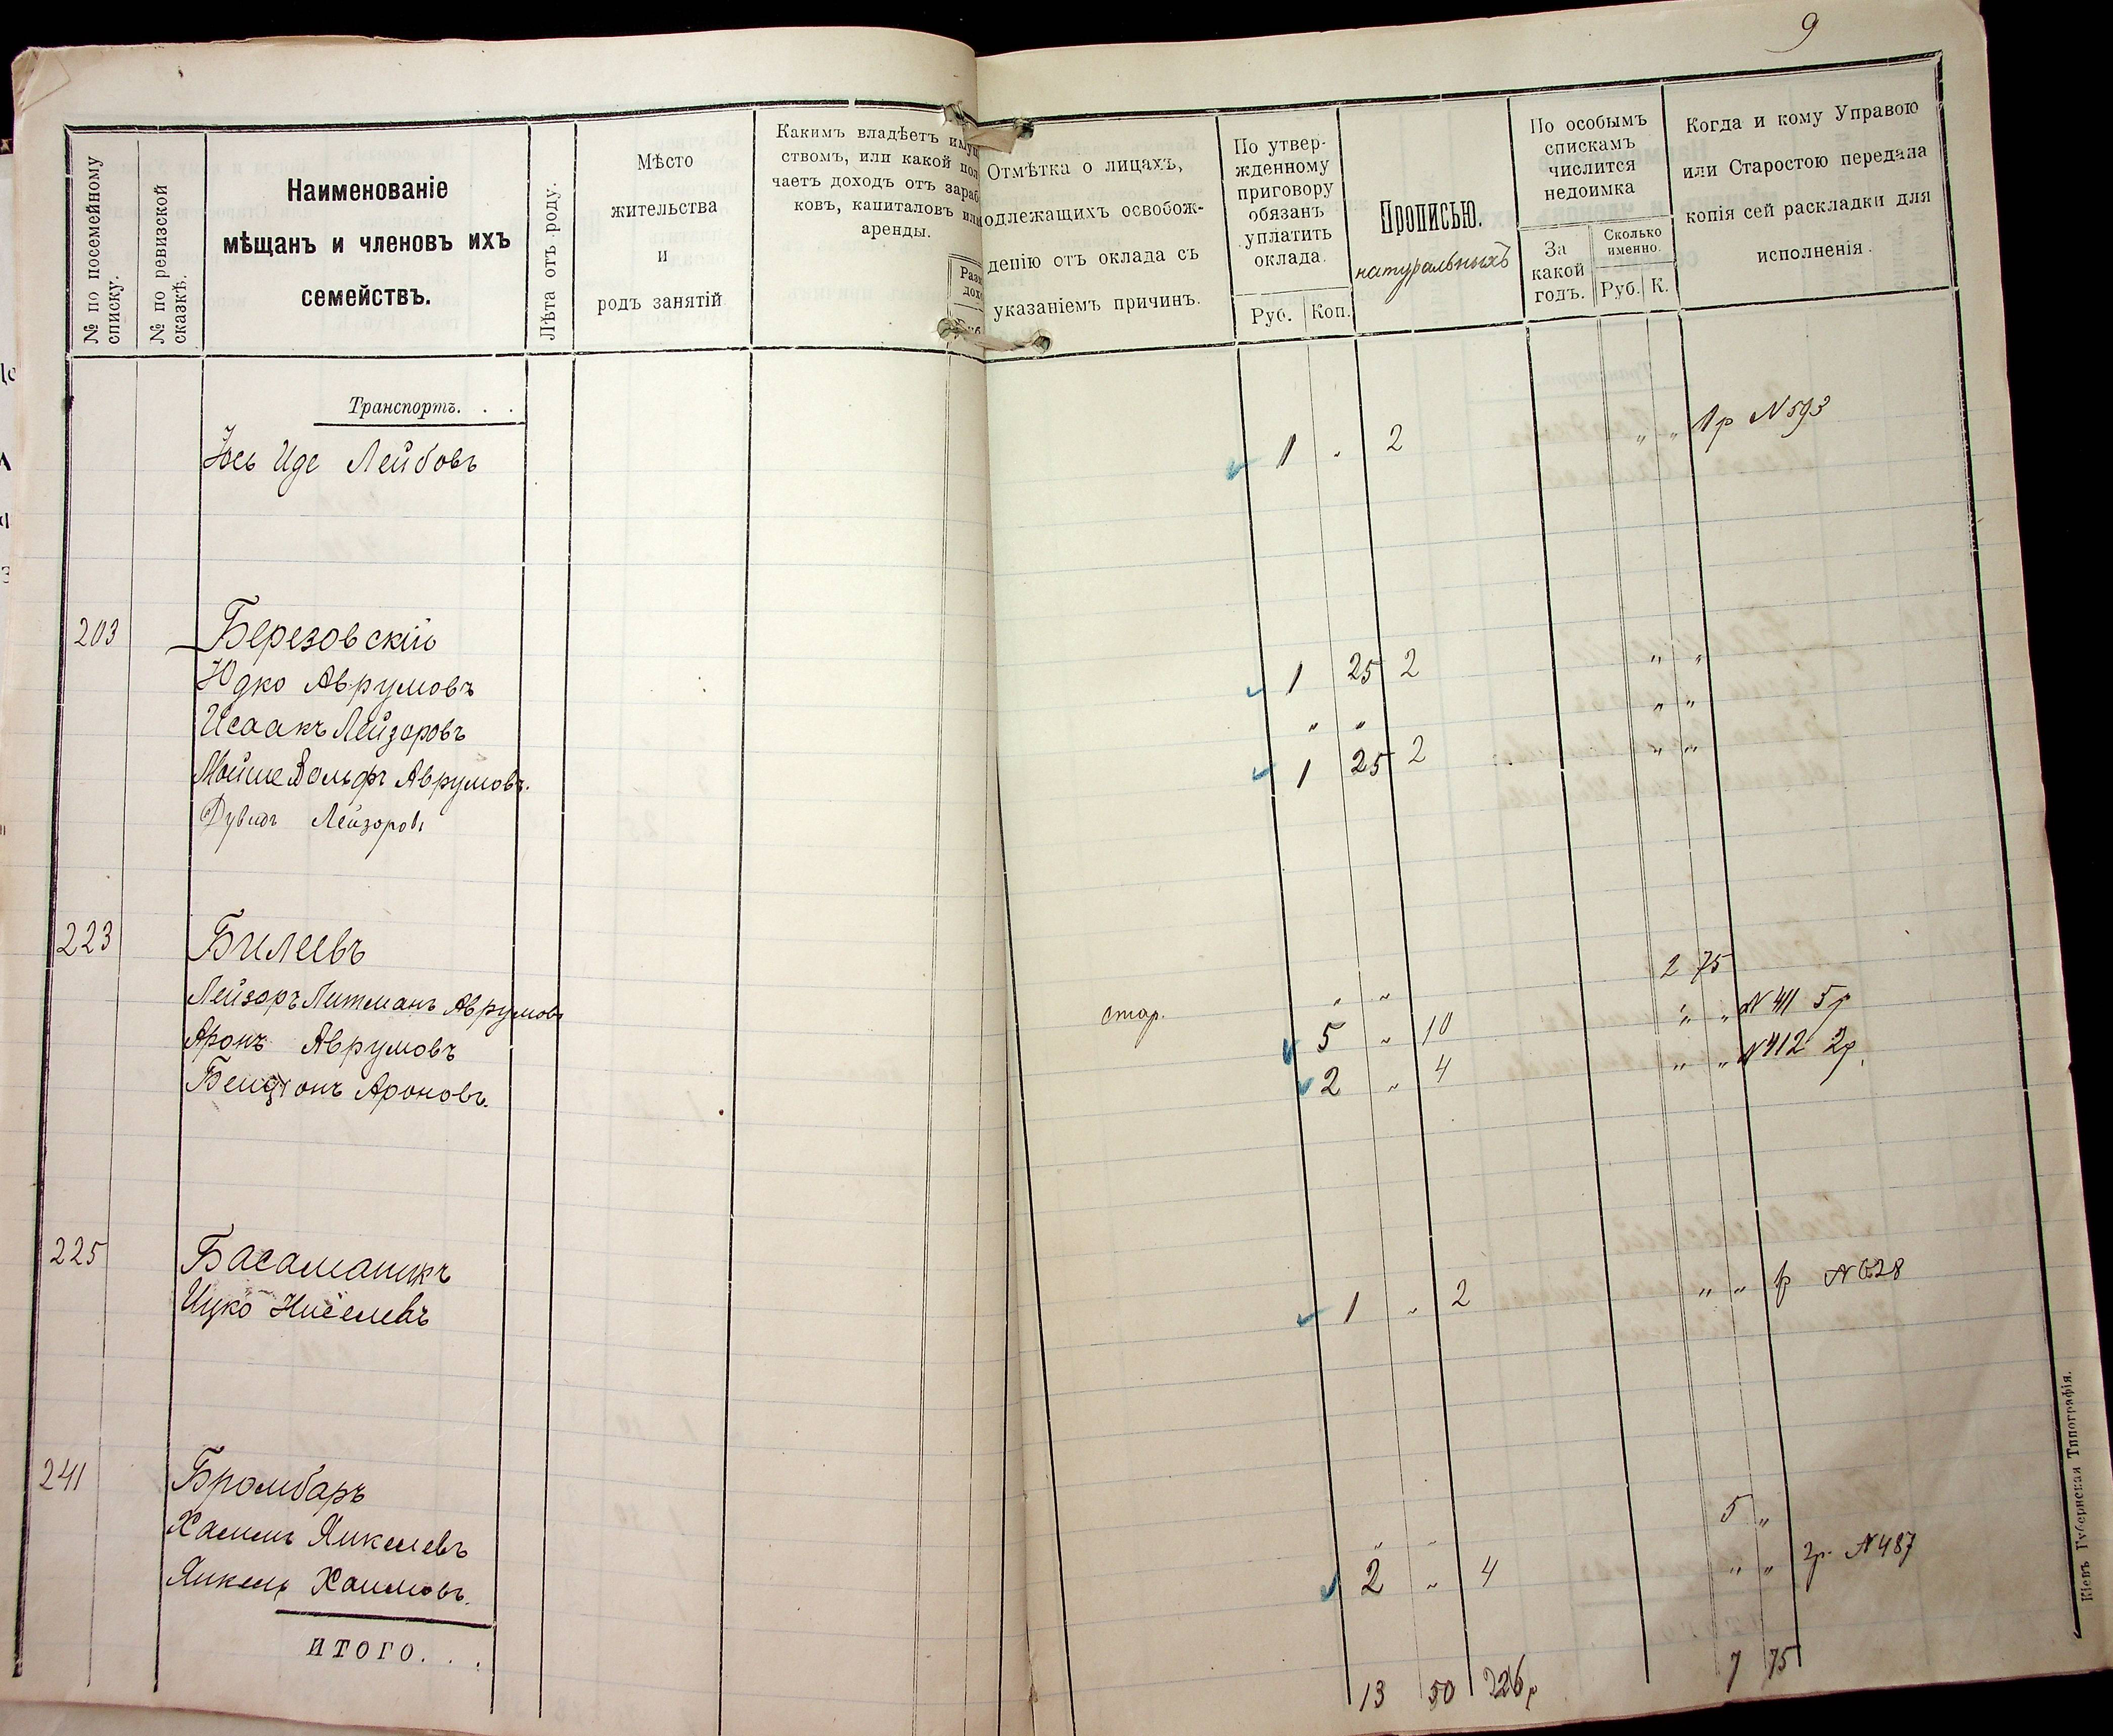 9
№ по посемейному списку.
№ по ревизской сказкѣ.
Наименованіе
мѣщанъ и членовъ ихъ
семействъ.
Лѣта отъ роду.
Мѣсто
жительства
и
родъ занятій
Какимъ владѣетъ имущ
ствомъ, или какой пол
чаетъ доходъ отъ зараб
ковъ, капиталовъ или
аренды.
Раз
дох
Отмѣтка о лицахъ,
одлежащихъ освобож-
денію отъ оклада съ
указаніемъ причинъ.
По утвер-
жденному
приговору
обязанъ
уплатить
оклада.
Руб. Коп.
Прописью.
натуральныхъ
По особымъ
спискамъ
числится
недоимка
За
какой
годъ.
Сколько
именно.
Руб. К.
Когда и кому Управою
или Старостою передана
копія сей раскладки для
исполненія.
Транспортъ. . .
Іось Иде Лейбовъ 1 „ 2 „ „ 1р N 593
203 Березовскій
Юдко Аврумовъ 1 25 2 „ „
Исаакъ Лейзоровъ „ „ „ „
Мойше Вольфъ Аврумовъ. 1 25 2 „ „
Дувидъ Лейзоровъ
223 Билеевъ
Лейзоръ Литманъ Аврумовъ стар. „ „ 2 75
Аронъ Аврумовъ 5 „ 10 „ „ N 411 5р
Бенціонъ Ароновъ. 2 „ 4 „ „ N 412 2р.
225 Басаманикъ
Ицко Ниселевъ 1 „ 2 „ „ 1р N 628
241 Бромбаръ
Хаимъ Янкелевъ „ „ 5 „
Янкель Хаимовъ. 2 „ 4 „ „ 2р. N 487
ИТОГО. . .
13 50 226р 7 75
Кіевъ Губернская Типографія.